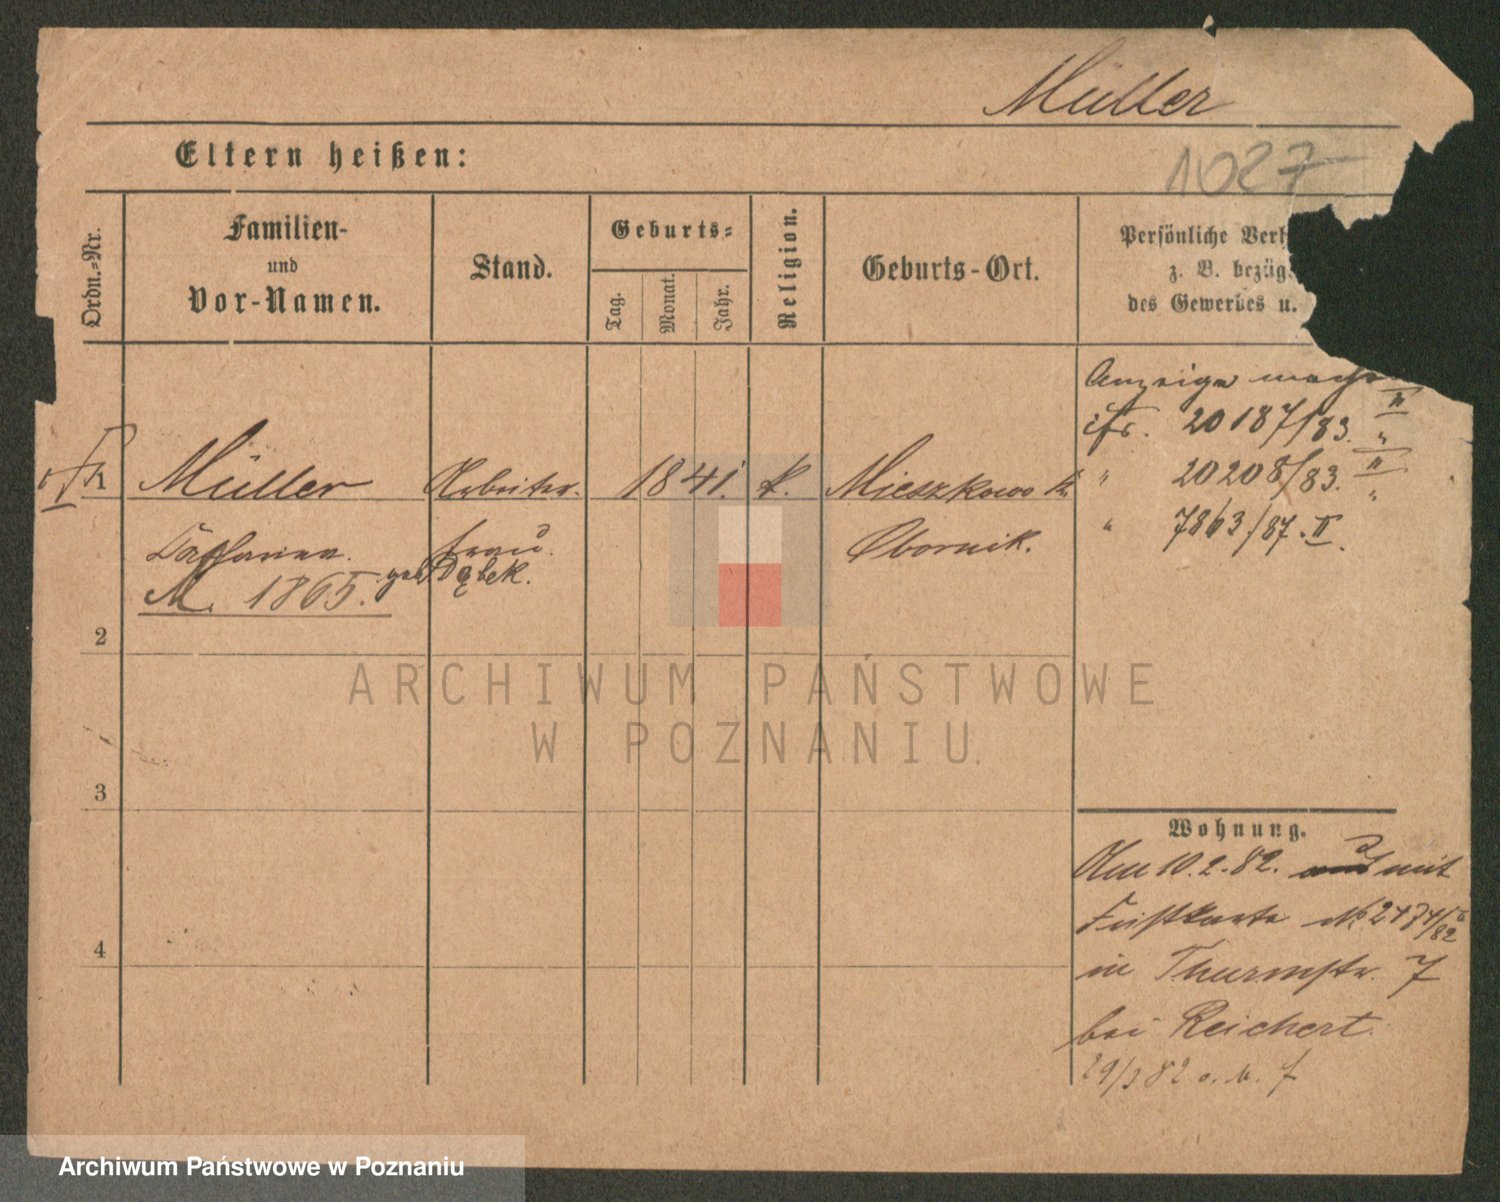 Müller
1027
Eltern heißen:
Ordn.-Nr.
Familien-
und
Vor-Namen.
Stand.
Geburts-
Tag.
Monat.
Jahr.
Religion.
Geburts-Ort.
Persönliche Verh
z. B. bezüg.
des Gewerbes u.
Anzeige macht
20187/83. II
" 20208/83. II "
" 7863/87. II.
1
Müller Arbeiter. 1841. k. Mieszkowo Kr.
frau. Obornik.
geb Dębek.
M. 1865.
2
3
4
Wohnung.
Am 10.2.82. mit
No
in Thurmstr. 7
bei Reichert.
29/3 82
ARCHIWUM PAŃSTWOWE
W POZNANIU
Archiwum Państwowe w Poznaniu